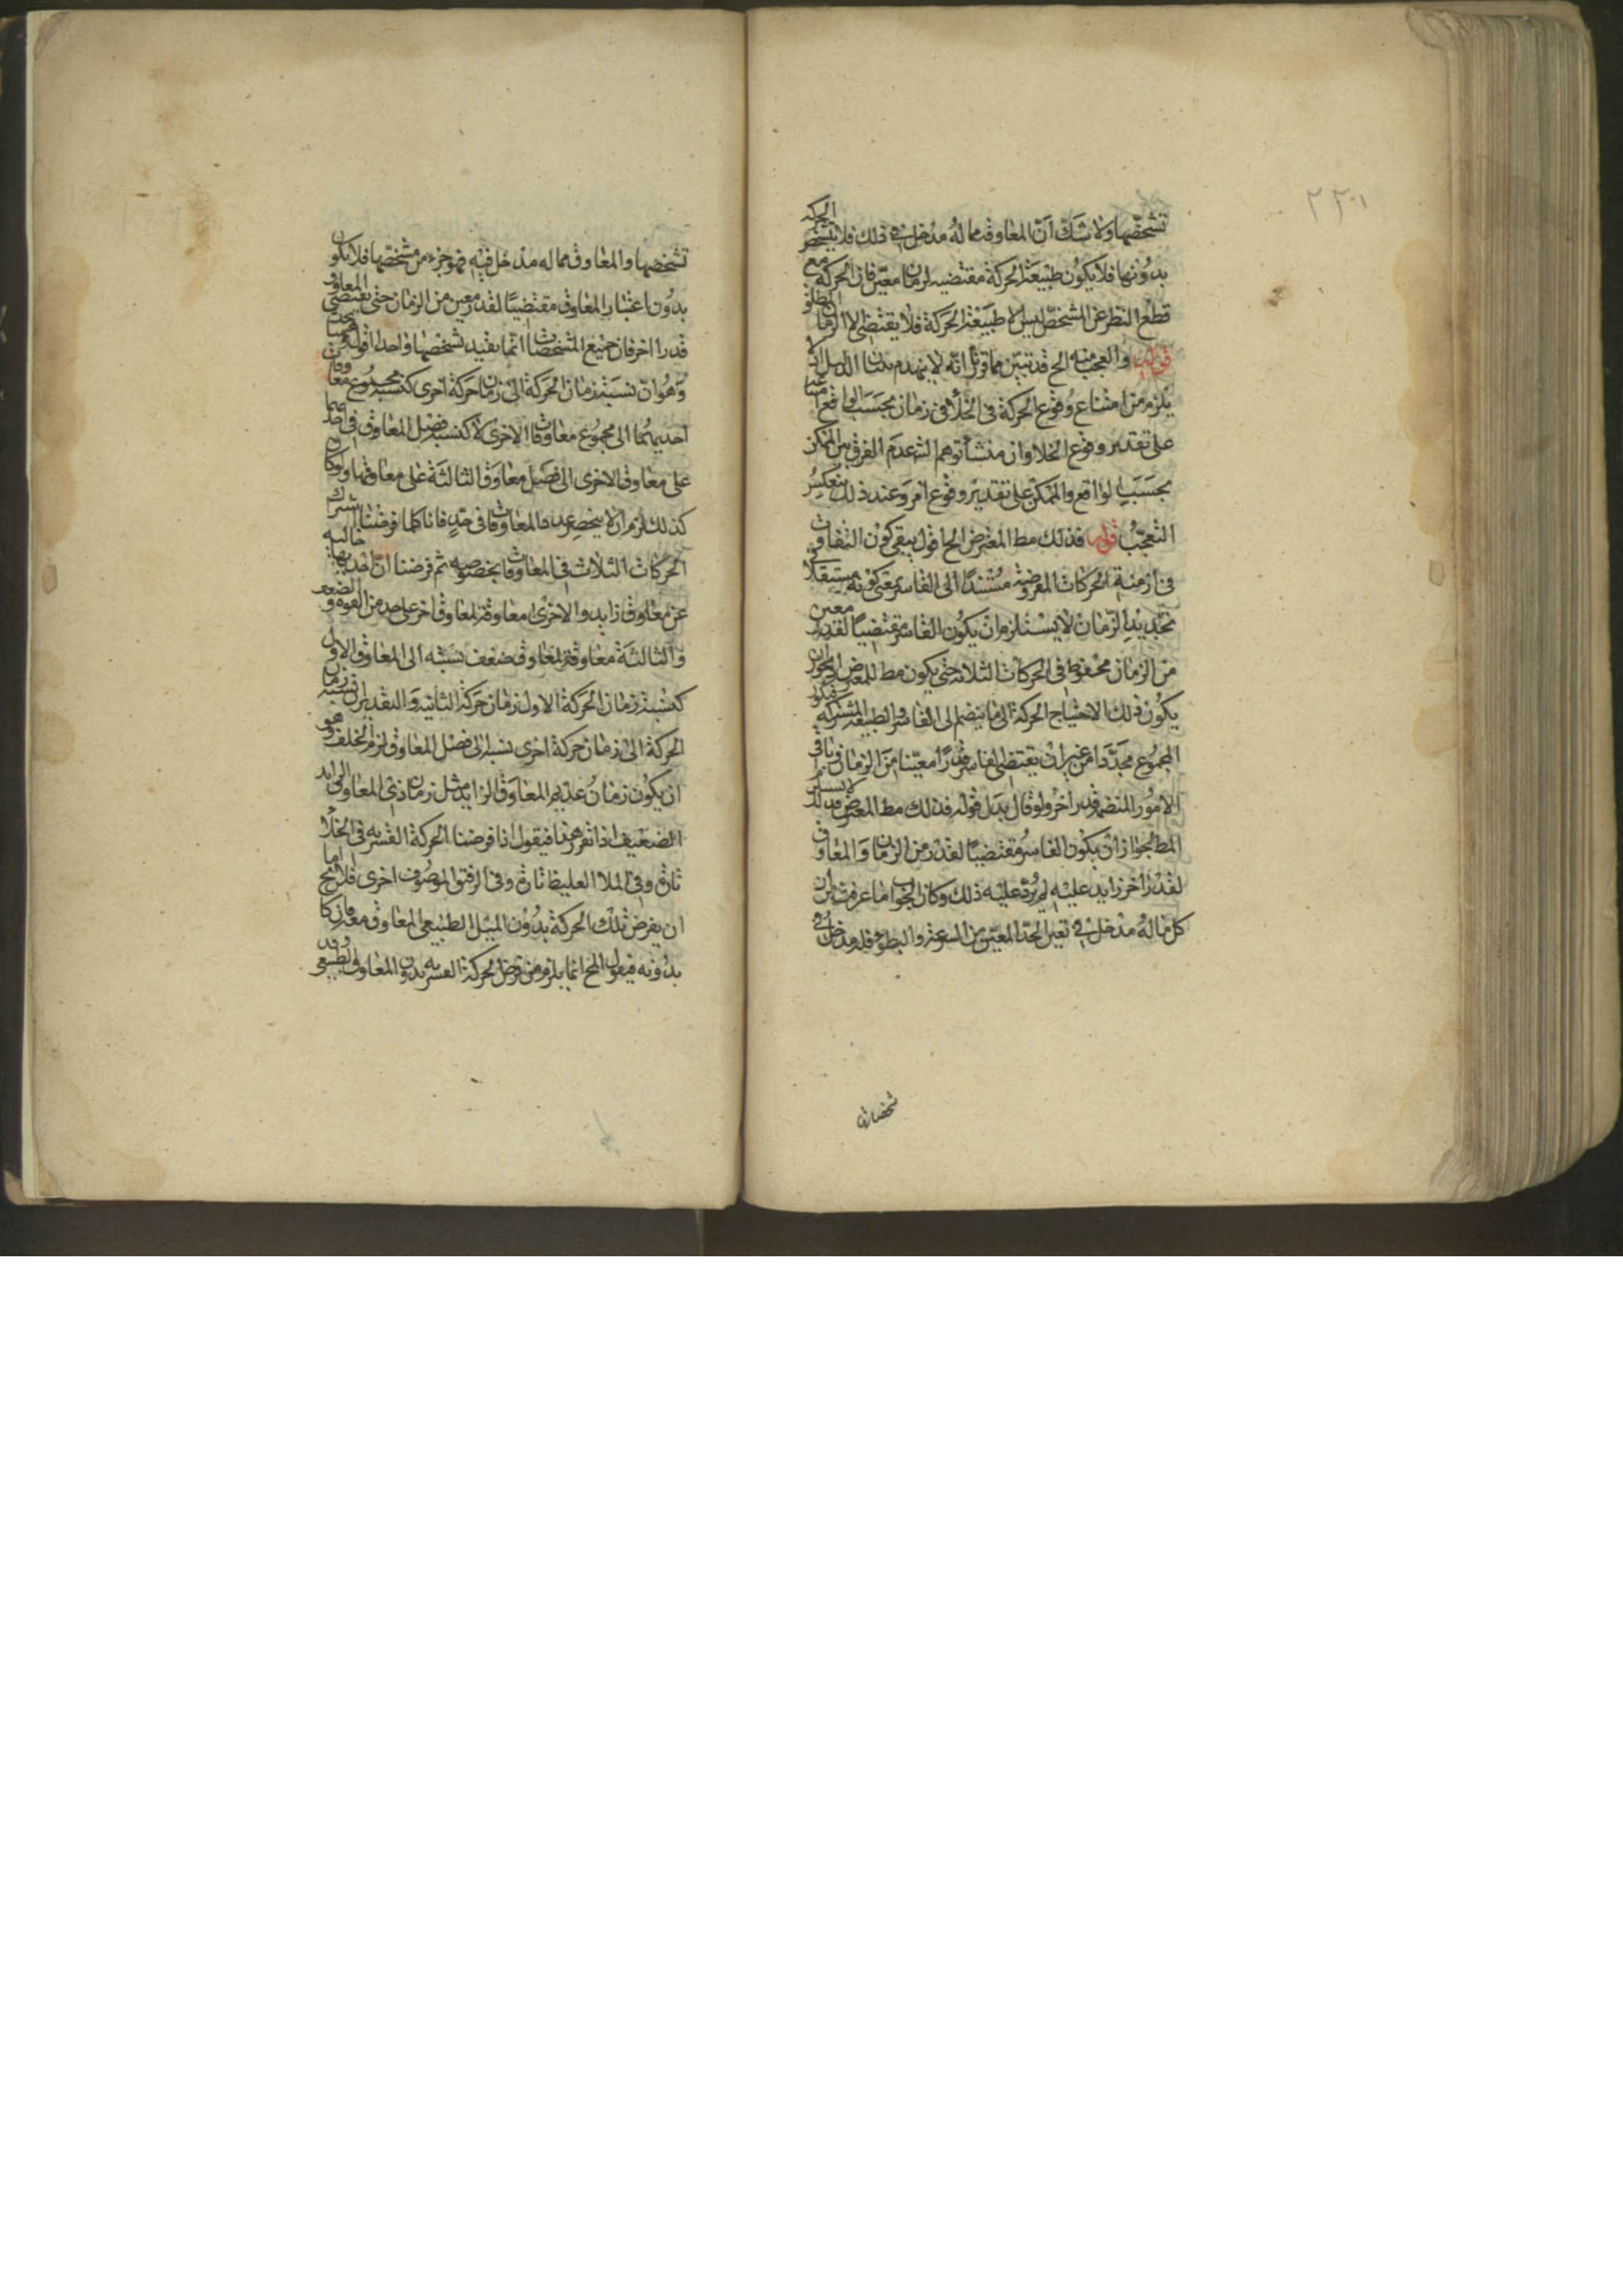 ٢٢٠١
تشخصها ولا شك ان المعاوق مما له مدخل في ذلك فلا يتشخص الحركة
بدونها فلا يكون طبيعة الحركة مقتضية لزمان معين فان الحركة مع
قطع النظر عن المشخص ليس الا طبيعة الحركة فلا يقتضى الا الزمان المطلق
قوله والعجب منه الخ قد تبين مما قررنا انه لا ينهدم بنيان الدليل اذ لا
يلزم من امتناع وقوع الحركة في الخلأ في زمان بحسب الواقع امتناعها
على تقدير وقوع الخلا وان منشأ توهم الشه عدم الفرق بين الممكن
بحسب الواقع والممكن على تقدير وقوع امر وعند ذلك ينعكس
التعجب قوله فذلك مط المعترض الخ اقول يبقى كون التفاوت
في ازمنة الحركات المفروضة مستندا الى القاسر بمعنى كونه مستقلا في
تحديد الزمان لا يستلزم ان يكون القاسر مقتضيا لقدر معين
من الزمان محفوظ في الحركات الثلاثة حتى يكون مط للمعترض لجواز ان
يكون ذلك الاحتياج الحركة الى ما ينضم الى القاسر والطبيعة المشتركة فيكون
المجموع محددا من غير ان يقتضى القاسر قدرا معينا من الزمان وباقي
الامور المنضمة قدر اخر ولو قال بدل قوله فذلك مط المعترض
المط لجواز ان يكون القاسر مقتضيا لقدر من الزمان والمعاوق
لقدر اخر زايد عليه لم يرد عليه ذلك وكان الجواب ما عرفت من ان
كل ما له مدخل في تعين الحد المعين من السرعة والبطوء فله مدخل في
تشخصها و
تشخصها والمعاوق مما له مدخل فيه فهو جزء من مشخصها فلا يكون
بدون اعتبار المعاوق مقتضيا لقدر معين من الزمان حتى يقتضى المعاوق
قدرا اخر فان جميع المشخصات انما يفيد تشخصها واحدا اقول ههنا بحث
وهو ان نسبة زمان الحركة الى زمان حركة اخرى كنسبة مجموع معاوقات
احديهما الى مجموع معاوقات الاخرى لا كنسبة فضل المعاوق في احديهما
على معاوق الاخرى الى فضل معاوق الثالثة على معاوقها ولو كان
كذلك لزم ان لا ينحصر عدد المعاوقات في حد فانا كلما فرضنا اشتراك
الحركات الثلاث في المعاوقات بخصوصه ثم فرضنا ان احديها خالية
عن معاوق زايد والاخرى معاوقة لمعاوق اخر على حد من القوة والضعف
والثالثة معاوقة لمعاوق ضعف نسبته الى المعاوق الاول
كنسبة زمان الحركة الاولى زمان حركة الثانية والتقدير ان نسبة زمان
الحركة الى زمان حركة اخرى نسبة الى فضل المعاوق لزم الخلف وهو
ان يكون زمان عديم المعاوق الزايد مثل زمان ذى المعاوق الزايد
الضعيف اذا تقرر هذا فيقول اذا فرضنا الحركة القسرية في الخلا
تارة وفي الملا الغليظ تارة وفي الرقيق الموصوف اخرى فلا يخ اما
ان يفرض تلك الحركة بدون الميل الطبيعي المعاوق معه فان كان
بدونه فيقول المح انما يلزم من فرض الحركة القسرية بدون المعاوق الطبيعي وقد